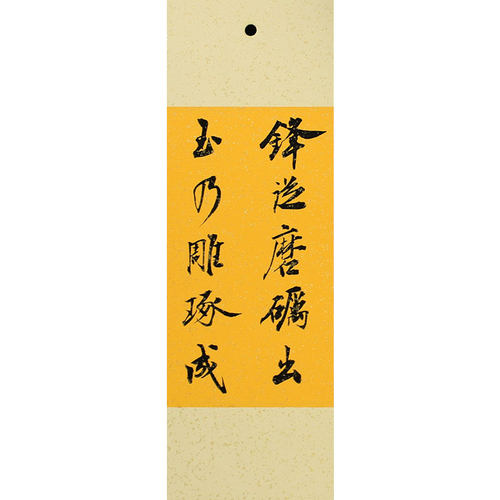 鋒從磨礪出
玉乃雕琢成